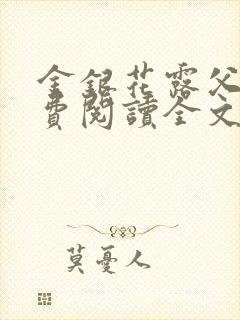 金銀花露父
費閱讀全文
莫憂人